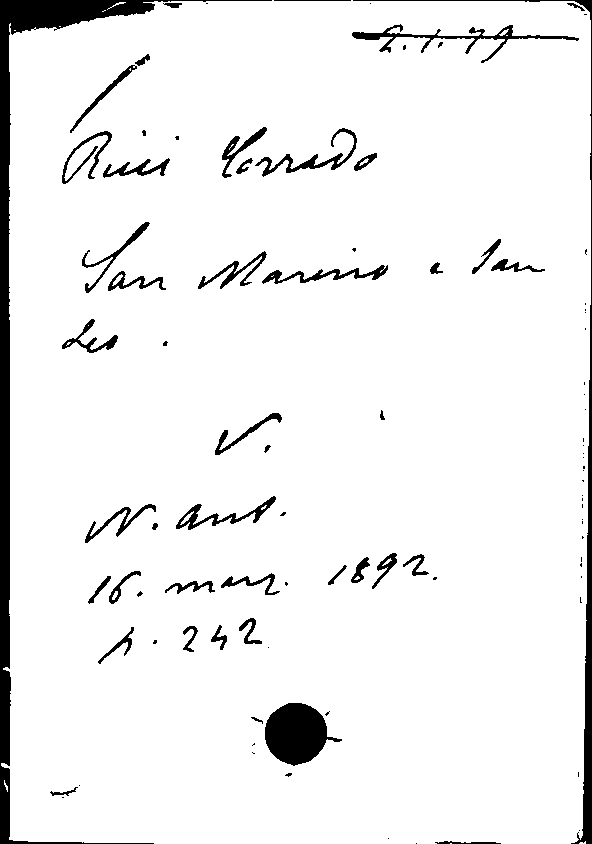 2.1.79
Ricci Corrado
San Marino e San
Leo.
V.
N. Ant.
16. marz. 1892.
p. 242